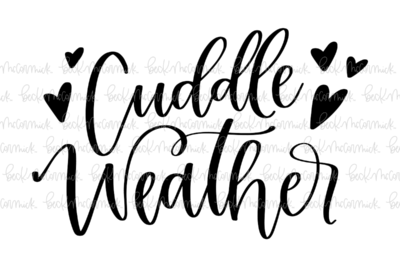 Cuddle
Weather